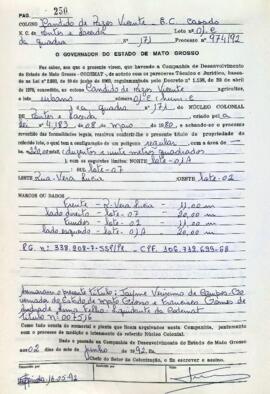 PAG. 250
COLONO Candido de Pazos Vicente - B.C. casado
N.C. de Pontes e Lacerda Lote nº 01-E
da quadra nº 171 Processo nº 974/92
O GOVERNADOR DO ESTADO DE MATO GROSSO
Faz saber, aos que o presente virem, que havendo a Companhia de Desenvolvimento
do Estado de Mato Grosso - CODEMAT -, de acordo com os pareceres Técnico e Jurídico, basea-
de 1978, concedido ao colono Candido de Pazos Vicente agricultor,
o lote urbano nº 01-E
da quadra nº 171 do NÚCLEO COLONIAL
de Pontes e Lacerda criado pela
Lei 4.182 de 08 de maio de 1980, e achando-se o processo
revestido das formalidades legais, resolveu conferir-lhe o presente título de propriedade do
referido lote, o qual se configura de um polígono regular com a área de
220 m² (duzentos e vinte metros quadrados)
com os seguintes limites: NORTE lote-01A
SUL lote-07
LESTE Rua-Vera Lucia OESTE lote-02
MARCOS OU RADOS
Frente - R-Vera Lucia - 11,00 m
lado direito - lote-07 - 20,00 m
Fundos - lote-02 - 11,00 m
lado esquerdo - lote-01A - 20,00 m
R.G. nº: 338.208-7-SSP/PR - CPF. 106.732.699-68
Assinaram o presente titulo: Jayme Verissimo de Campos - Go-
vernador do Estado de Mato Grosso e Francisco Gomes de
Andrade Lima Filho - Liquidante da Codemat
Titulo nº 007516
Como tudo consta do memorial e planta que ficam arquivados nesta Companhia, juntamente
com o processo de medição e loteamento do referido Núcleo Colonial.
Dado e passado na Companhia de Desenvolvimento do Estado de Mato Grosso
aos 02 dias do mês de junho de 92.
Secretário do Colono, O fiz escrever e assino.